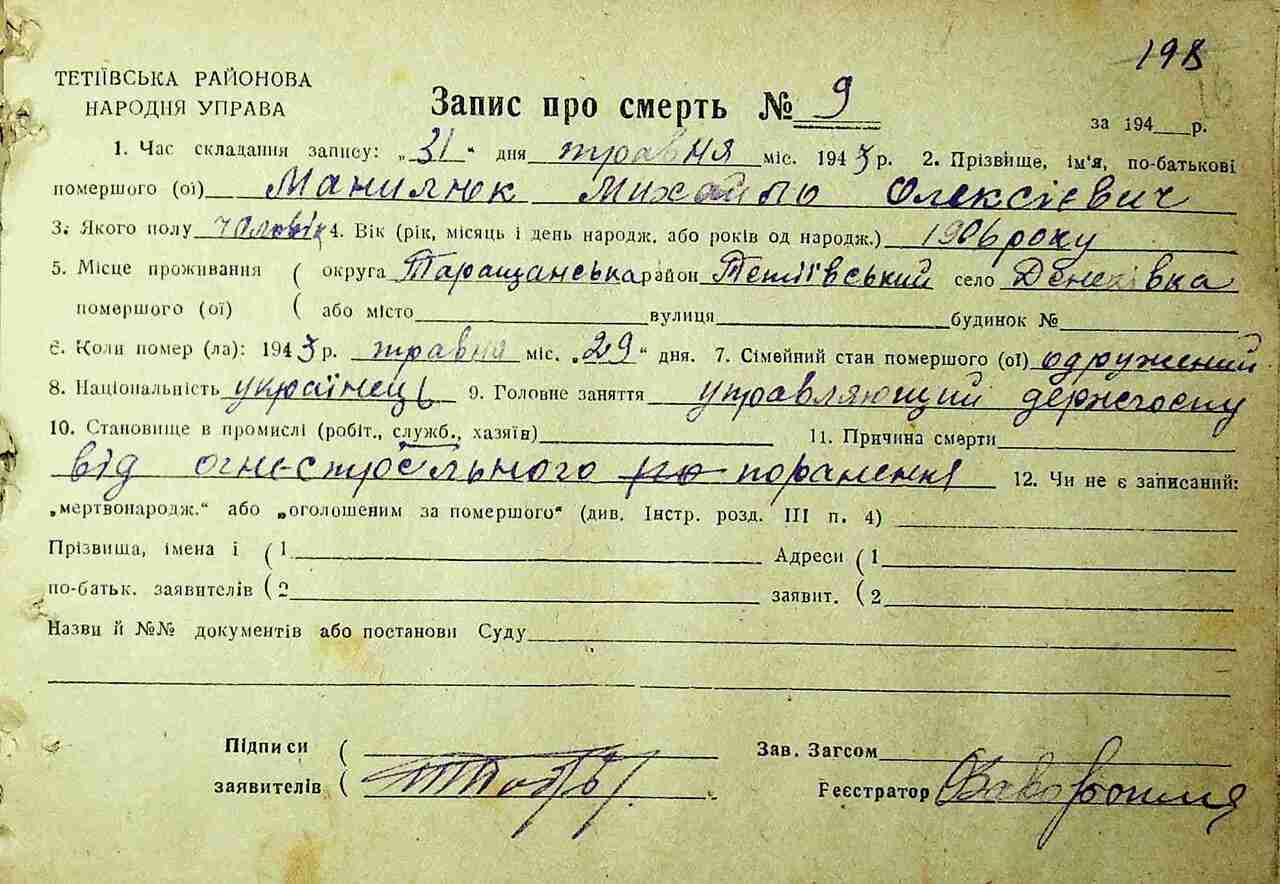 198
ТЕТІЇВСЬКА РАЙОНОВА
НАРОДНЯ УПРАВА
Запис про смерть № 9
за 194 р.
1. Час складання запису: „31“ дня травня міс. 1943 р. 2. Прізвище, ім'я, по-батькові
помершого (ої) Манилюк Михайло Олексієвич
3. Якого полу чоловік 4. Вік (рік, місяць і день народж. або років од народж.) 1906 року
5. Місце проживання ( округа Таращанська район Тетіївський село Денехівка
помершого (ої) ( або місто вулиця будинок №
6. Коли помер (ла): 1943 р. травня міс. „29“ дня. 7. Сімейний стан помершого (ої) одружений
8. Національність українець 9. Головне заняття управляющий держгоспу
10. Становище в промислі (робіт., служб., хазяїн) 11. Причина смерти
від огнестрєльного по поранення 12. Чи не є записаний:
„мертвонародж.“ або „оголошеним за помершого“ (див. Інстр. розд. III п. 4)
Прізвища, імена і ( 1 Адреси ( 1
по-батьк. заявителів ( 2 заявит. ( 2
Назви й №№ документів або постанови Суду
Підписи ( Зав. Загсом
заявителів ( Реєстратор